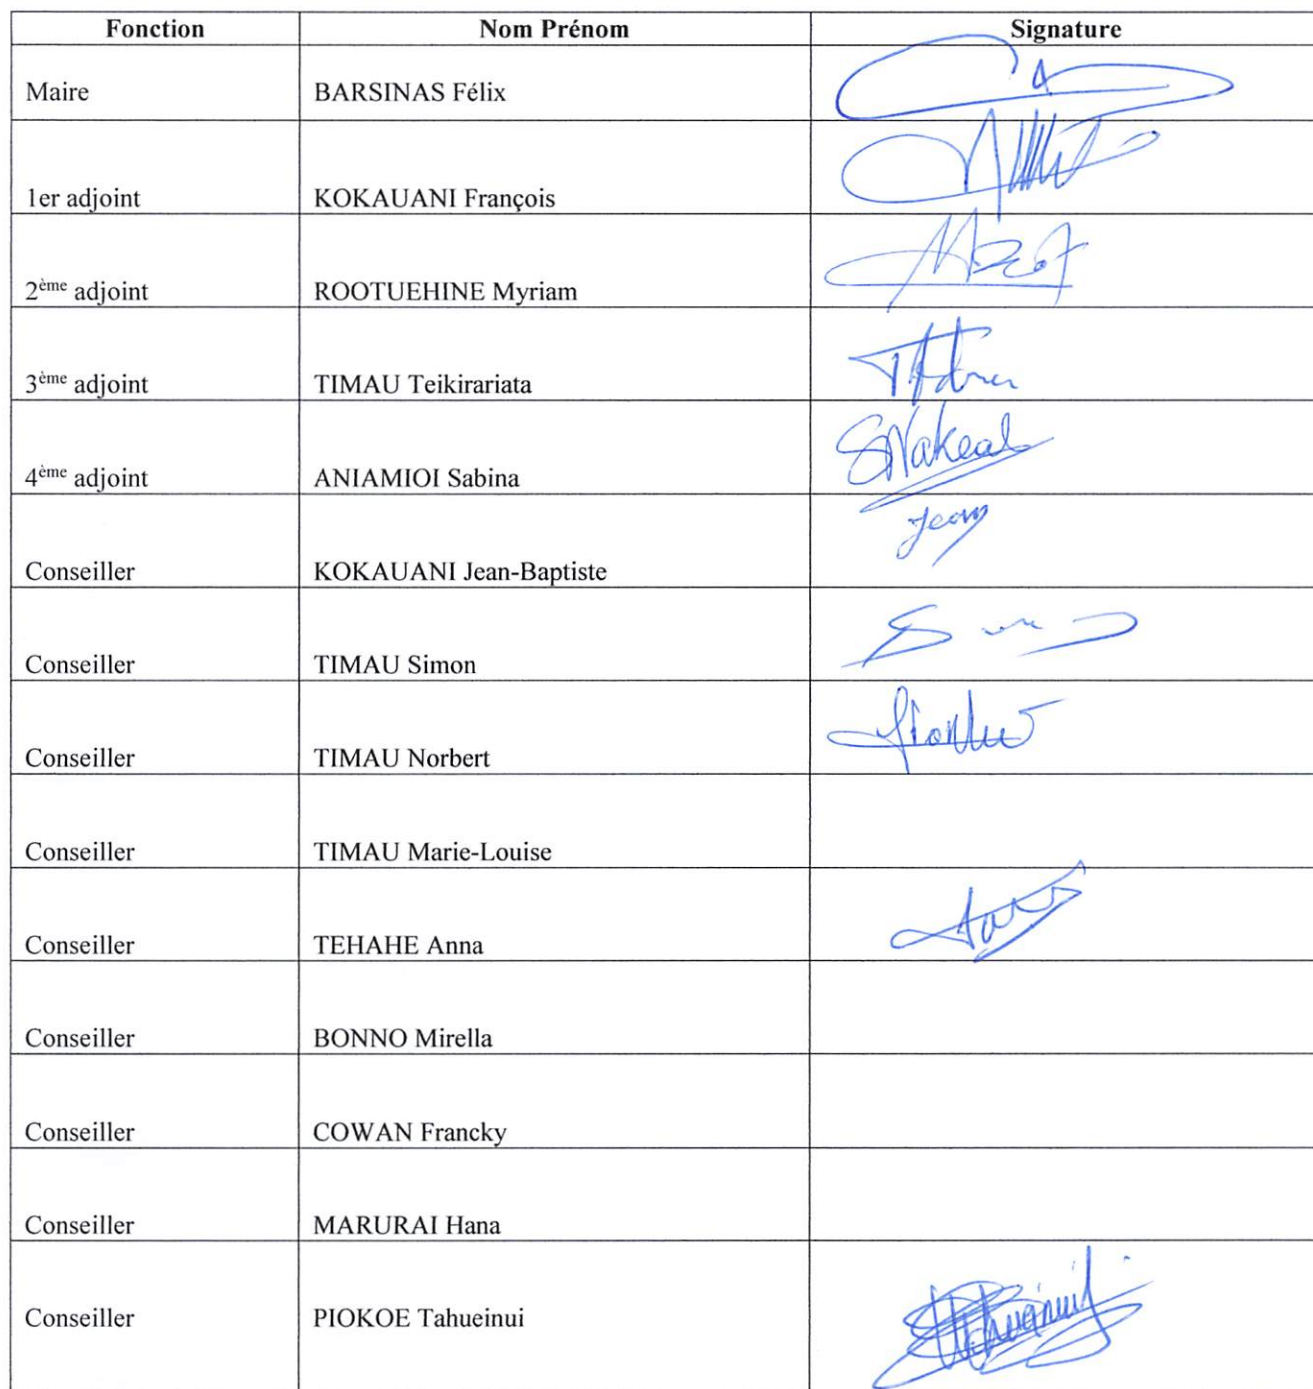 Fonction Nom Prénom Signature
Maire BARSINAS Félix
1er adjoint KOKAUANI François
2ème adjoint ROOTUEHINE Myriam
3ème adjoint TIMAU Teikirariata
4ème adjoint ANIAMIOI Sabina
Conseiller KOKAUANI Jean-Baptiste
Jean
Conseiller TIMAU Simon
Conseiller TIMAU Norbert
Conseiller TIMAU Marie-Louise
Conseiller TEHAHE Anna
Conseiller BONNO Mirella
Conseiller COWAN Francky
Conseiller MARURAI Hana
Conseiller PIOKOE Tahueinui